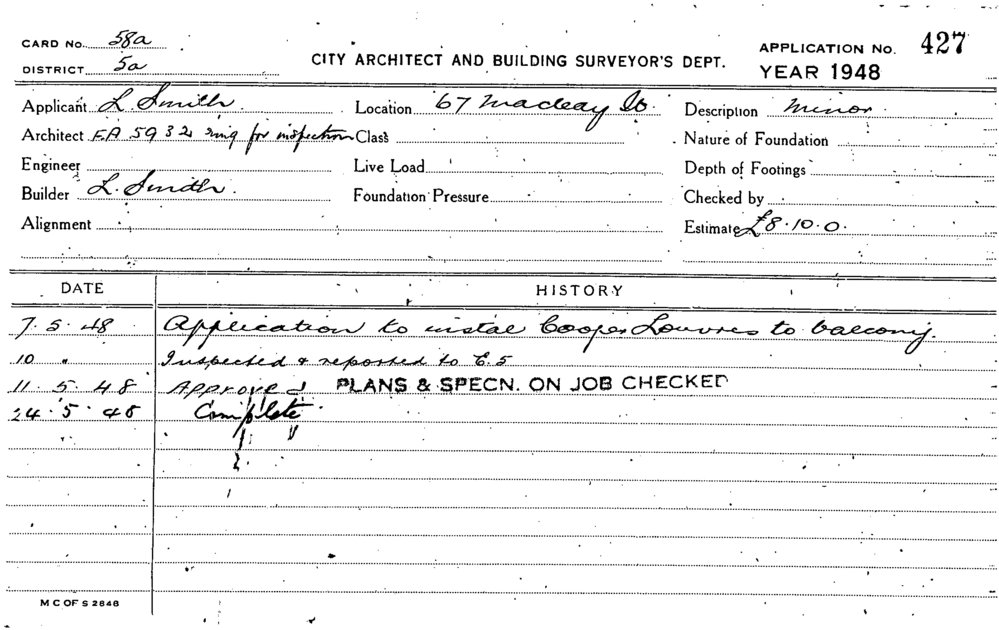 CARD No. 58a
DISTRICT 5a
CITY ARCHITECT AND BUILDING SURVEYOR'S DEPT.
APPLICATION No. 427
YEAR 1948
Applicant L Smith Location 67 Macleay St. Description Minor
Architect FA 5932 ring for inspection Class Nature of Foundation
Engineer Live Load Depth of Footings
Builder L. Smith. Foundation Pressure Checked by
Alignment Estimate £8.10.0.
DATE HISTORY
7.5.48 Application to instal Cooper Louvres to balcony.
10 " Inspected & reported to E.S
11.5.48 Approved PLANS & SPECN. ON JOB CHECKED
24.5.48 Complete
M C OF S 2848